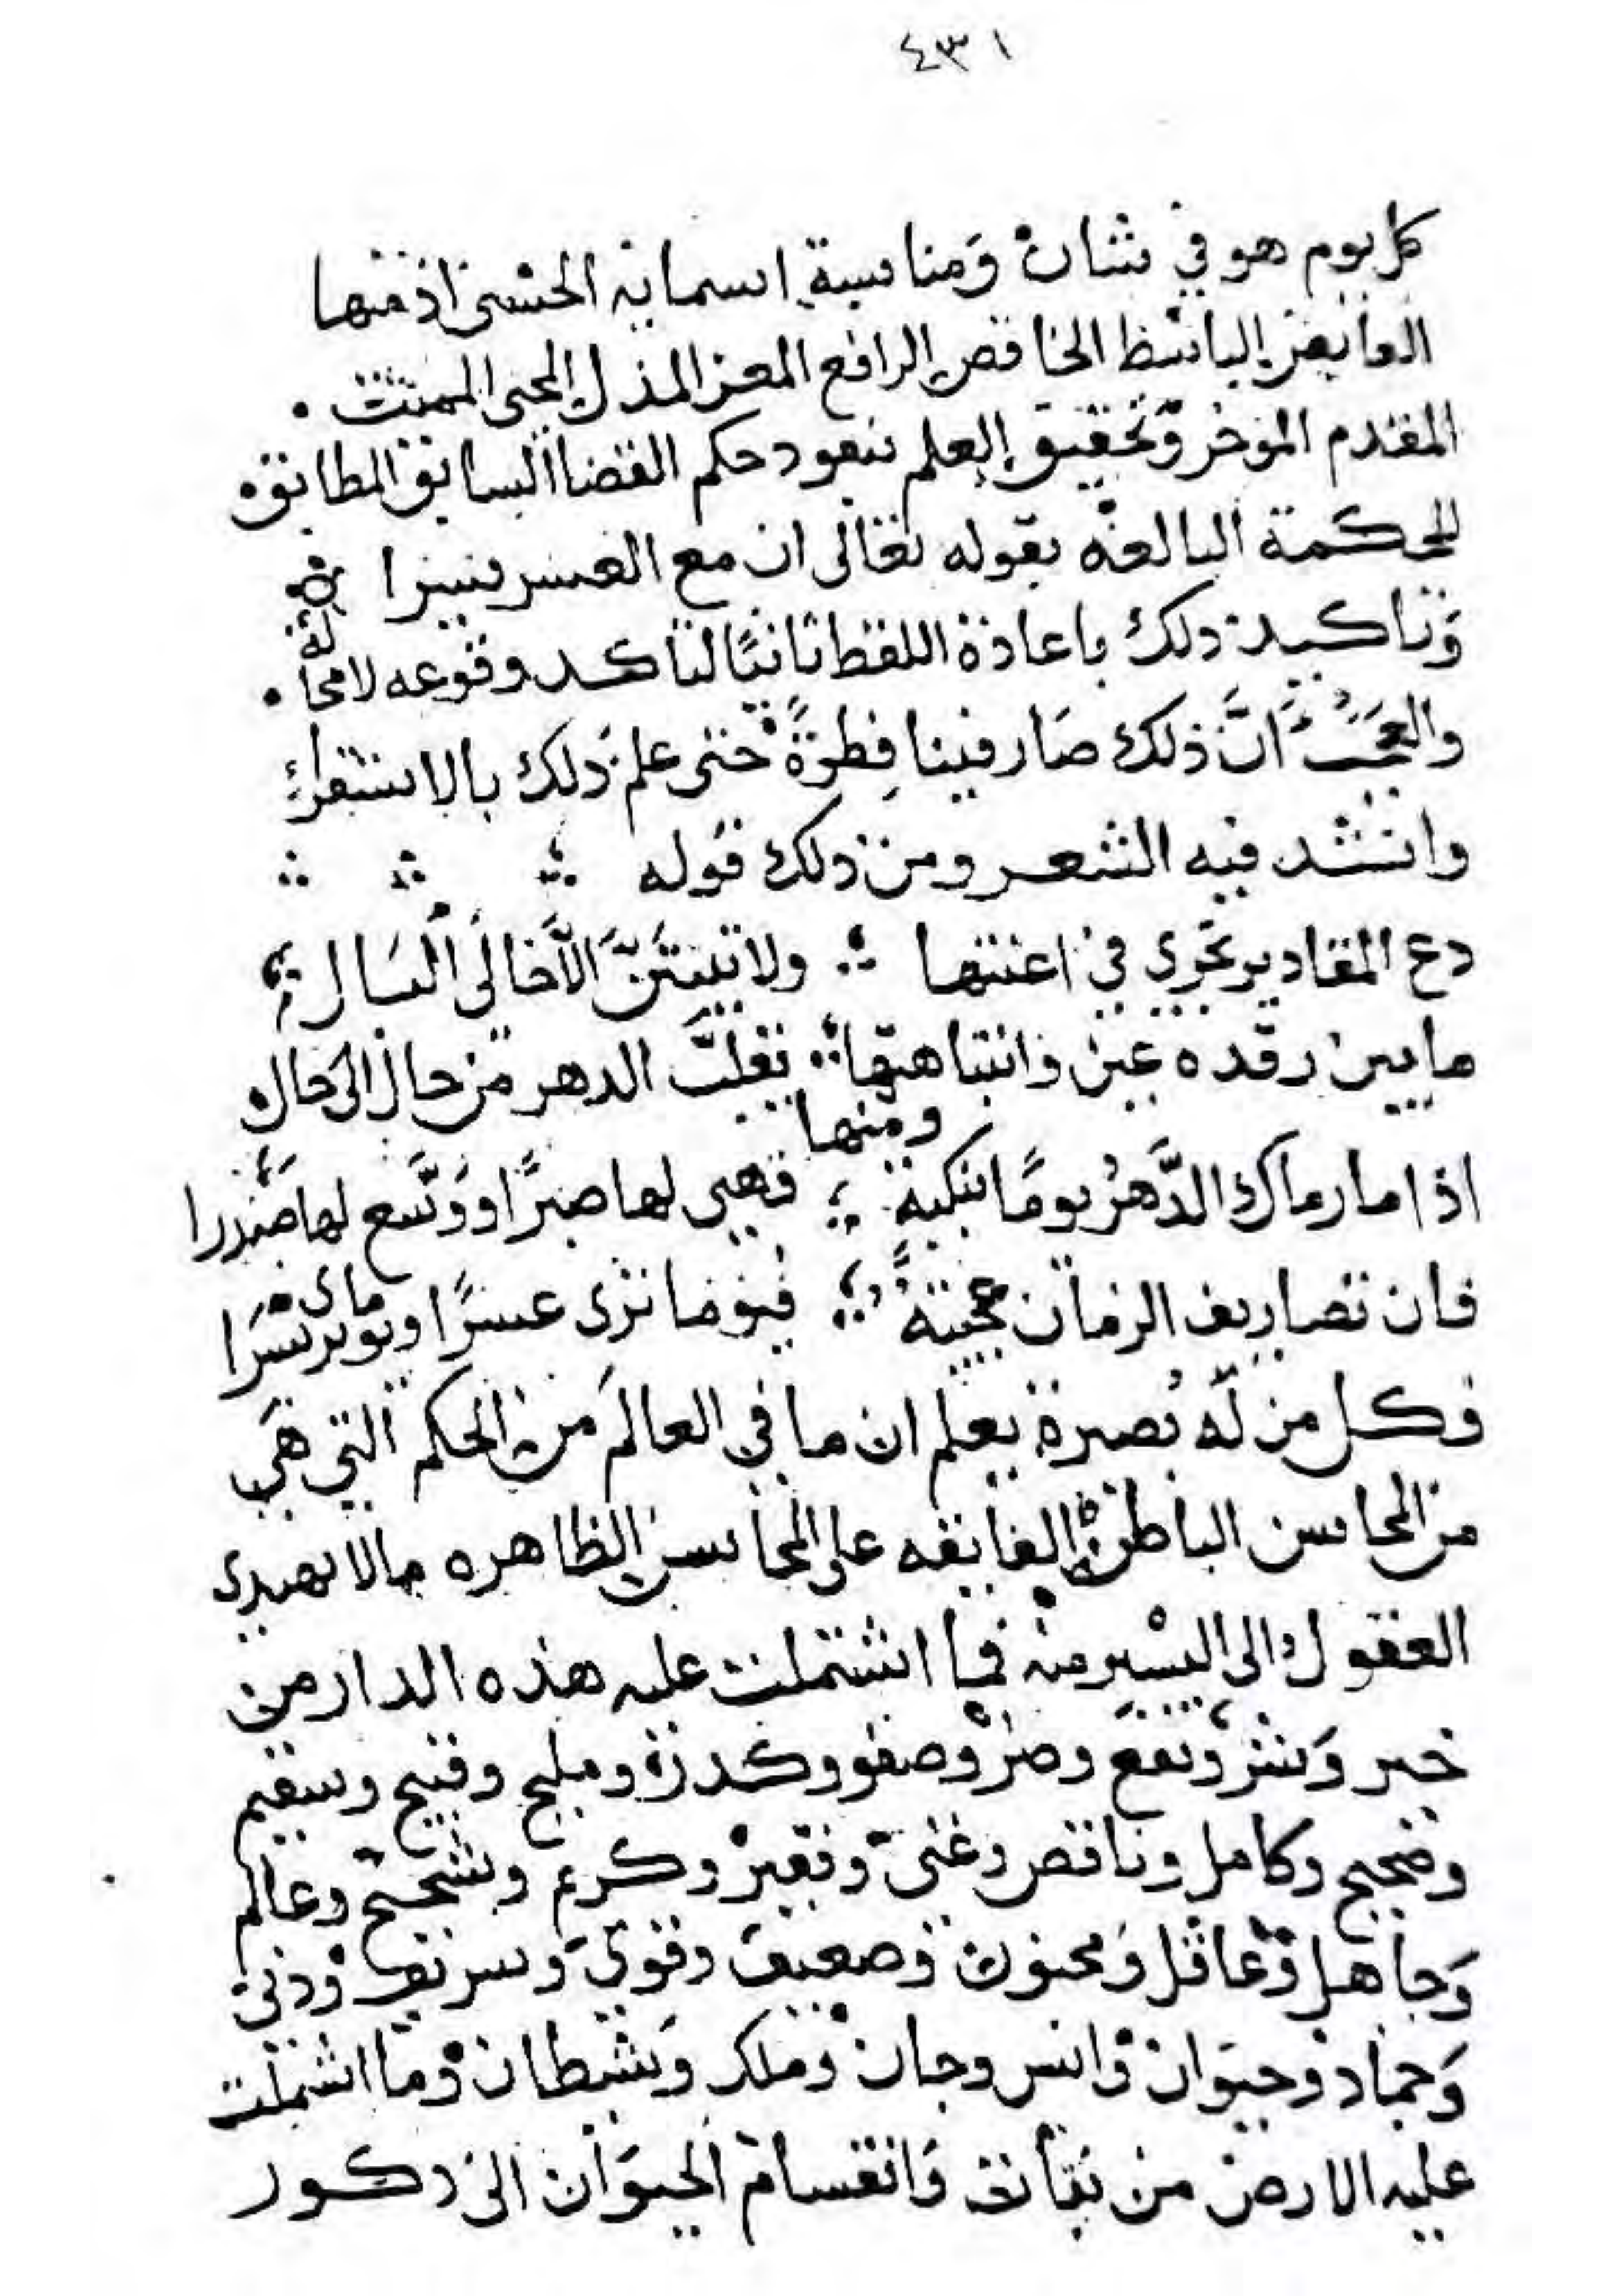 ٤٣١
كل يوم هو في شان ومناسبة اسمائه الحسنى اذ منها
القابض الباسط الخافض الرافع المعز المذل المحيي المميت .
المقدم الموخر وتحقيق العلم بنفوذ حكم القضا السابق المطابقه
للحكمة البالغه بقوله تعالى ان مع العسر يسرا ه
وتاكيد ذلك باعادة اللفظ ثانيًا لتاكد وقوعه لا محالة .
والعجبُ انَّ ذلك صار فينا فِطرةً حتى علم ذلك بالاستقراء
وانشد فيه الشعر ومن ذلك قوله
دع المقادير تجري في اعنتها ولا تبيتَنَّ الَّا خالي البال
ما بين رقده عين وانتباهتها تقلب الدهر من حال الى حال
ومنها
اذا ما رماك الدَّهرُ يومًا بنكبة فهيي لها صبرًا ووَسّع لها صدرا
فان تصاريف الزمان عجيبةٌ فيوما ترى عسرًا ويوما ترى يسرا
فكل من له بصيرة يعلم ان ما في العالم من الحكم التي هي
من المحاسن الباطنة الفايقه على المحاسن الظاهره مالا يهدي
العقول الى اليسير منه فيما اشتملت عليه هذه الدار من
خير وشر ونفع وضر وصفو وكدرة ومليح وقبيح وسقيم
وصحيح وكامل وناقص وغني وفقير وكريم وشحيح وعالم
وجاهل وعاقل ومجنون وضعيف وقوي وشريف ودني
وجماد وحيوان وانس وجان وملك وشيطان وما اشتملت
عليه الارض من نبات وانقسام الحيوان الى ذكور